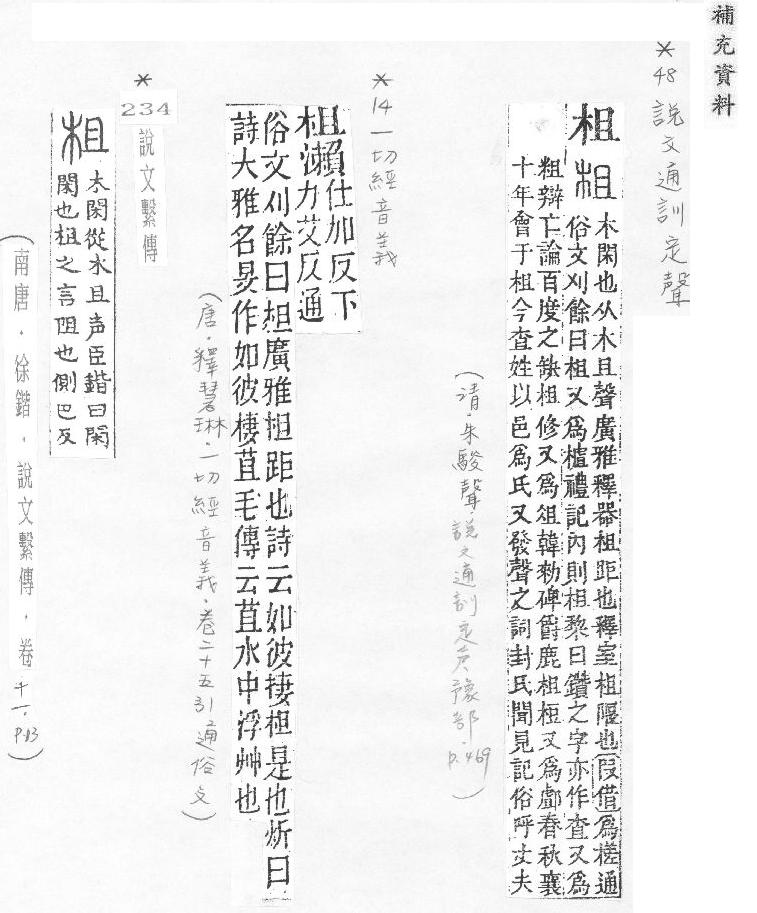 補充資料
*48 說文通訓定聲
柤 柤 木閑也从木且聲廣雅釋器柤距也釋室柤隁也〔叚借〕爲槎通
俗文刈餘曰柤又爲樝禮記內則柤棃曰鑽之字亦作査又爲
粗辯亡論百度之缺柤修又爲俎韓勑碑爵鹿柤梪又爲䣜春秋襄
十年會于柤今査姓以邑爲氏又發聲之詞封氏聞見記俗呼丈夫
(清.朱駿聲.說文通訓定声.豫部.p.469)
*14 一切經音義
柤瀨仕加反下力艾反通
俗文刈餘曰柤廣雅柤距也詩云如彼捿柤是也炘曰
詩大雅召旻作如彼棲苴毛傳云苴水中浮艸也
(唐.釋慧琳.一切經音義.卷二十五引通俗文)
*234 說文繫傳
柤 木閑從木且声臣鍇曰閑
閑也柤之言阻也側巴反
(南唐.徐鍇.說文繫傳.卷十一.p.13)